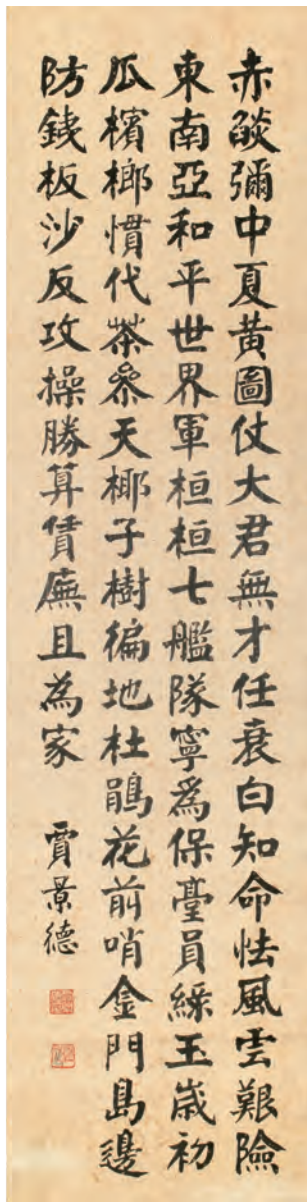 赤燄彌中夏黃圖仗大君無才任衰白知命怯風雲艱險
東南亞和平世界軍桓桓七艦隊寧為保臺員綠玉歲初
瓜檳榔慣代茶參天椰子樹徧地杜鵑花前哨金門島邊
防銕板沙反攻操勝算賃廡且為家
賈景德